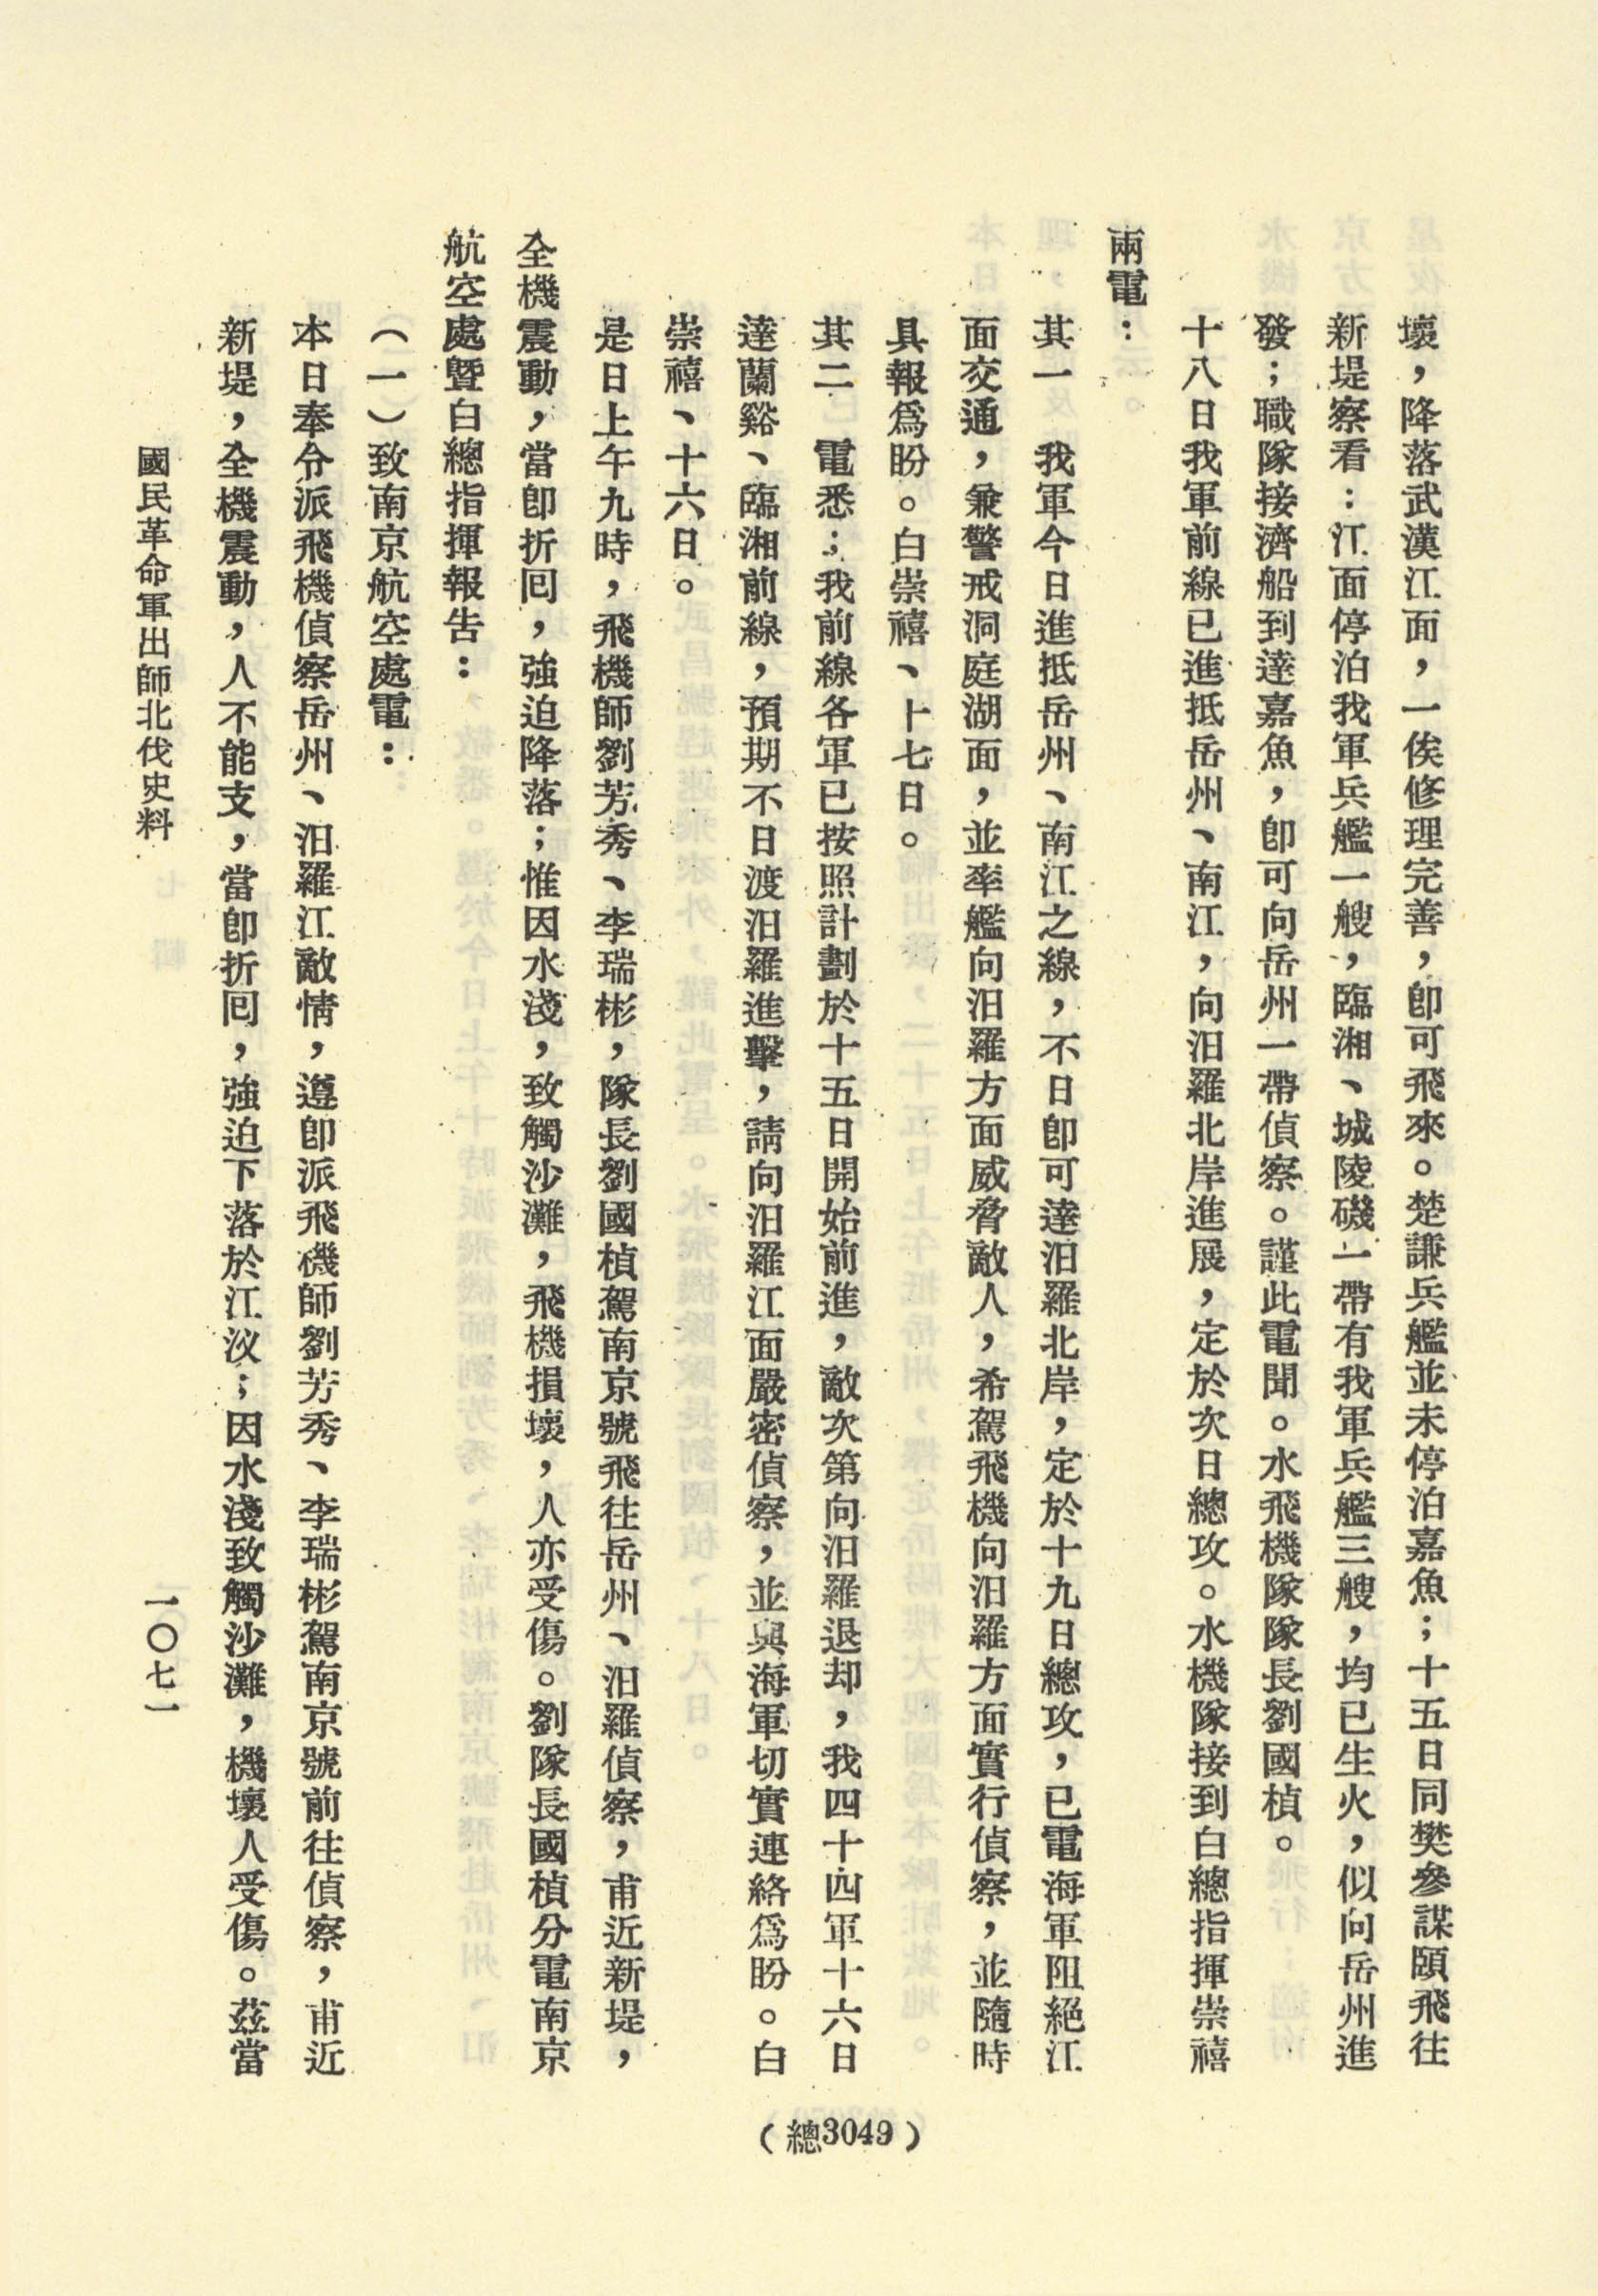 壞，降落武漢江面，一俟修理完善，卽可飛來。楚謙兵艦並未停泊嘉魚；十五日同樊參謀頤飛往
新堤察看：江面停泊我軍兵艦一艘，臨湘、城陵磯一帶有我軍兵艦三艘，均已生火，似向岳州進
發；職隊接濟船到達嘉魚，卽可向岳州一帶偵察。謹此電聞。水飛機隊隊長劉國楨。
十八日我軍前線已進抵岳州、南江，向汨羅北岸進展，定於次日總攻。水機隊接到白總指揮崇禧
兩電：
其一　我軍今日進抵岳州、南江之線，不日卽可達汨羅北岸，定於十九日總攻，已電海軍阻絕江
面交通，兼警戒洞庭湖面，並率艦向汨羅方面威脅敵人，希駕飛機向汨羅方面實行偵察，並隨時
具報爲盼。白崇禧、十七日。
其二　電悉；我前線各軍已按照計劃於十五日開始前進，敵次第向汨羅退却，我四十四軍十六日
達蘭谿、臨湘前線，預期不日渡汨羅進擊，請向汨羅江面嚴密偵察，並與海軍切實連絡爲盼。白
崇禧、十六日。
是日上午九時，飛機師劉芳秀、李瑞彬，隊長劉國楨駕南京號飛往岳州、汨羅偵察，甫近新堤，
全機震動，當卽折囘，強迫降落；惟因水淺，致觸沙灘，飛機損壞，人亦受傷。劉隊長國楨分電南京
航空處暨白總指揮報告：
（一）致南京航空處電：
本日奉令派飛機偵察岳州、汨羅江敵情，遵卽派飛機師劉芳秀、李瑞彬駕南京號前往偵察，甫近
新堤，全機震動，人不能支，當卽折囘，強迫下落於江汊；因水淺致觸沙灘，機壞人受傷。茲當
國民革命軍出師北伐史料
一〇七一
（總3049）